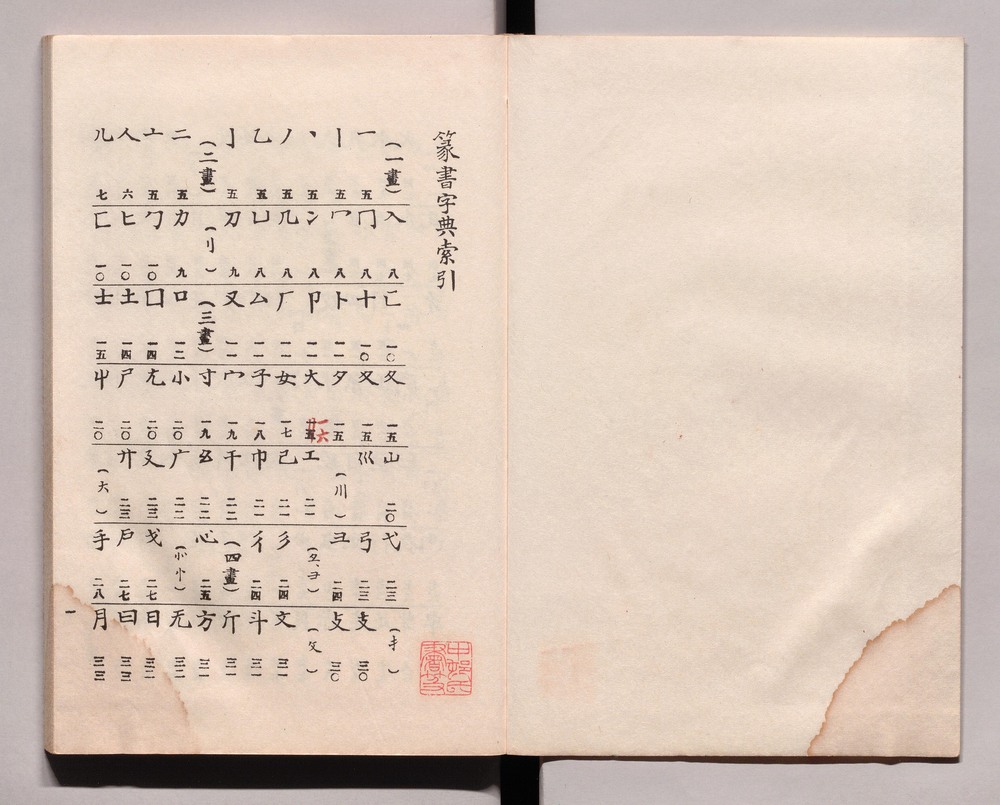 篆書字典索引
（一畫）
一 五
丨 五
丶 五
丿 五
乙 五
亅 五
（二畫）
二 五
亠 五
人 六
儿 七
入 八
冂 八
冖 八
冫 八
几 八
凵 八
刀 九
（刂）
力 九
勹 一〇
匕 一〇
匚 一〇
匸 一〇
十 一〇
卜 一一
卩 一一
厂 一一
厶 一一
又 一一
（三畫）
口 一二
囗 一四
土 一四
士 一五
夂 一五
夊 一五
夕 一五
大 一六
女 一七
子 一八
宀 一九
寸 一九
小 二〇
尢 二〇
尸 二〇
屮 二〇
山 二〇
巛
（川）
工 二一
己 二一
巾 二一
干 二二
幺 二二
广 二二
廴 二三
廾 二三
（大）
弋 二三
弓 二三
彐 二四
（彑、ヨ）
彡 二四
彳 二四
（四畫）
心 二五
（㣺忄）
戈 二七
戶 二七
手 二八
（扌）
支 三〇
攴 三〇
（攵）
文 三一
斗 三一
斤 三一
方 三一
无 三二
日 三二
曰 三三
月 三三
一